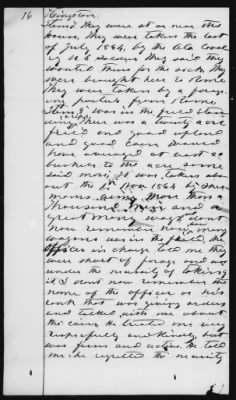 16 Kingston
Item 2 They were at or near the
house, They were taken the last
of July 1864, by the
of U S Soldiers They said they
wanted them for the sick. They
were brought here to Rome
They were taken by a forage-
ing party from Rome,
Item 3 was in the field stan-
ding. There was a twenty acre
field and good upland
and good corn. I
have averaged at least 20
bushels to the acre. Some
said more, it was taken ab-
out the 1st Nov 1864 by Sher
mans army. More than a
thousand men and a
great many wagons. I dont
now remember how many
wagons was in the field, the
officer in charge told me they
were short of forage and was
under the necessity of taking
it, I dont now remember the
name of the officer or his
rank that was giving orders
and talked with me about
the corn. He treated me very
respectfully and kindly but
was firm and He told
me he regretted the necessity